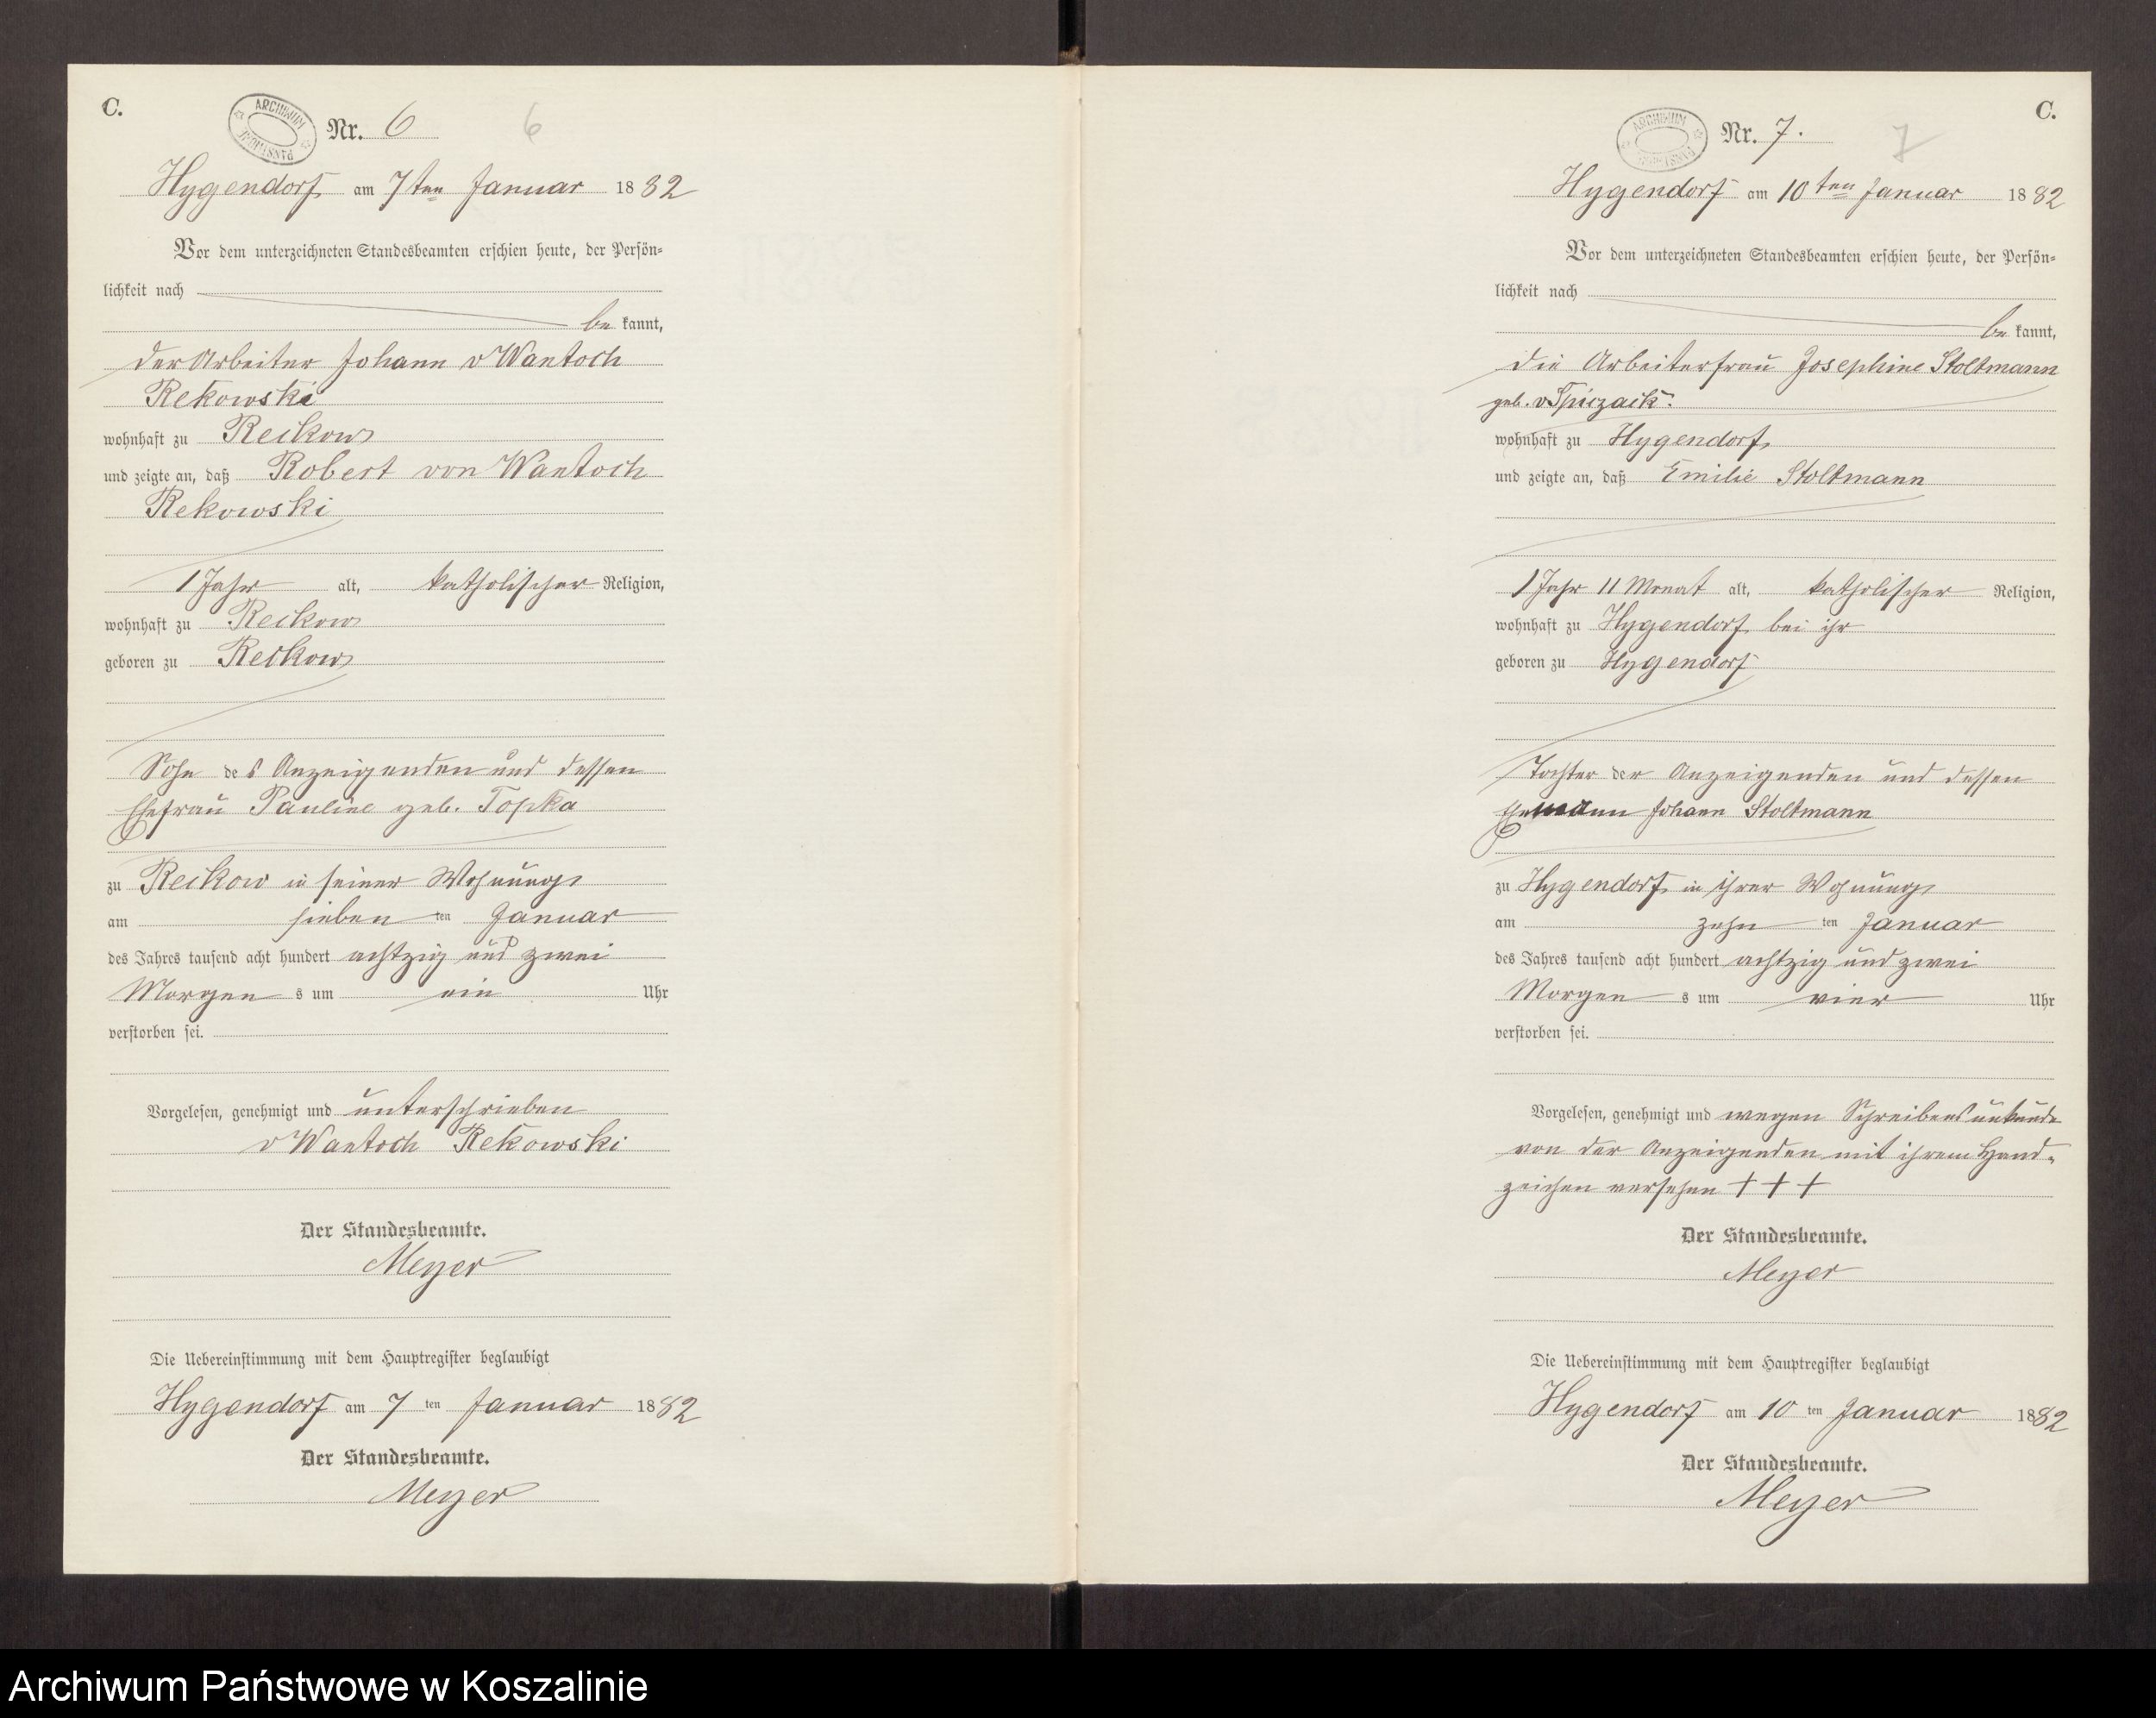 C.
ARCHIWUM PAŃSTWOWE
Nr. 6
6
Hygendorf am 7ten Januar 1882
Vor dem unterzeichneten Standesbeamten erschien heute, der Persön-
lichkeit nach
be kannt,
der Arbeiter Johann v Wantoch
Rekowski
wohnhaft zu Reckow
und zeigte an, daß Robert von Wantoch
Rekowski
1 Jahr alt, katholischer Religion,
wohnhaft zu Reckow
geboren zu Reckow
Sohn des Anzeigenden und dessen
Ehefrau Pauline geb. Topka
zu Reckow in seiner Wohnung
am sieben ten Januar
des Jahres tausend acht hundert achtzig und zwei
Morgen s um ein Uhr
verstorben sei.
Vorgelesen, genehmigt und unterschrieben
v Wantoch Rekowski
Der Standesbeamte.
Meyer
Die Uebereinstimmung mit dem Hauptregister beglaubigt
Hygendorf am 7 ten Januar 1882
Der Standesbeamte.
Meyer
C.
ARCHIWUM PAŃSTWOWE
Nr. 7.
7
Hygendorf am 10ten Januar 1882
Vor dem unterzeichneten Standesbeamten erschien heute, der Persön-
lichkeit nach
be kannt,
die Arbeiterfrau Josephine Stoltmann
geb. v Spiczack.
wohnhaft zu Hygendorf
und zeigte an, daß Emilie Stoltmann
1 Jahr 11 Monat alt, katholischer Religion,
wohnhaft zu Hygendorf bei ihr
geboren zu Hygendorf
Tochter der Anzeigenden und dessen
Ehemann Johann Stoltmann
zu Hygendorf in ihrer Wohnung
am zehn ten Januar
des Jahres tausend acht hundert achtzig und zwei
Morgen s um vier Uhr
verstorben sei.
Vorgelesen, genehmigt und wegen Schreibensunkunde
von der Anzeigenden mit ihrem Hand-
zeichen versehen + + +
Der Standesbeamte.
Meyer
Die Uebereinstimmung mit dem Hauptregister beglaubigt
Hygendorf am 10 ten Januar 1882
Der Standesbeamte.
Meyer
Archiwum Państwowe w Koszalinie